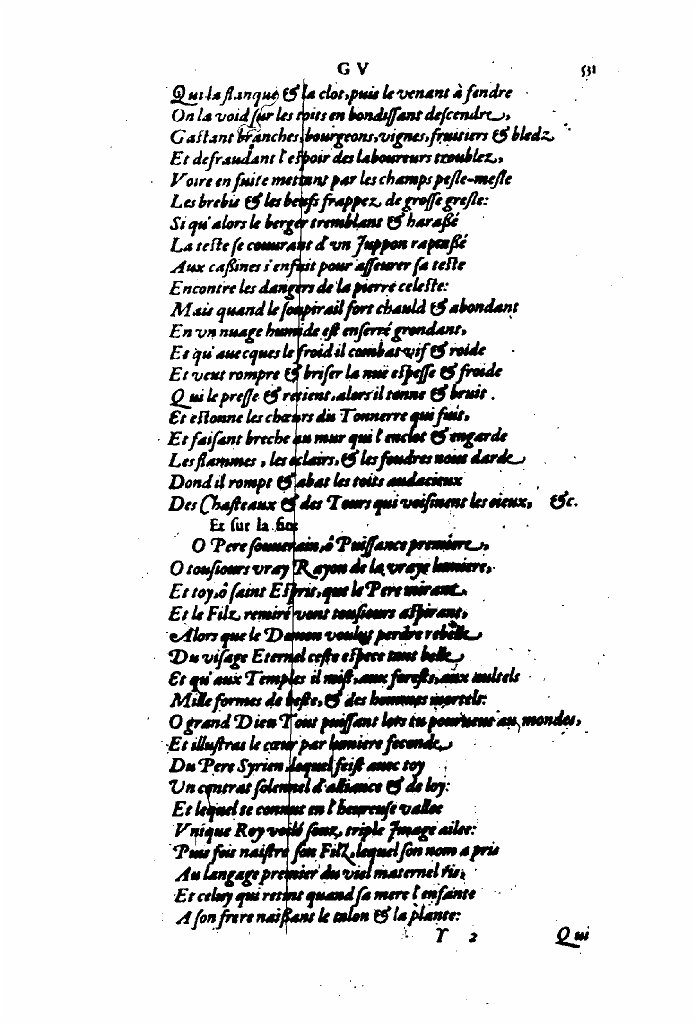 G V 531
Qui la flanque & la clot, puis le venant à fendre
On la void sur les toits en bondissant descendre,
Gastant branches, bourgeons, vignes, fruitiers & bledz
Et defraudant l'espoir des laboureurs troublez,
Voire en fuite mettant par les champs pesle-mesle
Les brebis & les beufs frappez de grosse gresle:
Si qu'alors le berger tremblant & harassé
La teste se couurant d'vn Juppon rapetassé
Aux cassines s'enfuit pour asseurer sa teste
Encontre les dangers de la pierre celeste:
Mais quand le soupirail fort chauld & abondant
En vn nuage humide est enserré grondant,
Et qu'auecques le froid il combat vif & roide
Et veut rompre & briser la nue espesse & froide
Qui le presse & retient, alors il tonne & bruit.
Et estonne les chœurs du Tonnerre qui suit,
Et faisant breche au mur qui l'enclot & engarde
Les flammes, les eclairs, & les foudres nous darde
Dond il rompt & abat les toits audacieux
Des Chasteaux & des Tours qui voisinent les cieux, &c.
Et sur la fin
O Pere souuerain, ô Puissance premiere,
O tousiours vray Rayon de la vraye lumiere,
Et toy, ô saint Esprit, que le Pere mirant,
Et le Filz remiré vont tousiours aspirant,
Alors que le Demon voulut perdre rebelle
Du visage Eternel ceste espece tant belle
Et qu'aux Temples il mist, aux forests, aux autels
Mille formes de bestes, & des hommes mortels:
O grand Dieu Tout puissant lors tu pourueus au mondes,
Et illustras le cœur par lumiere feconde
Du Pere Syrien lequel feist auec toy
Un contrat solennel d'alliance & de loy:
Et lequel te connut en l'heureuse vallee
Vnique Roy voilé souz triple Image ailee:
Puis fois naistre son Filz, lequel son nom a pris
Au langage premier du viel maternel ris,
Et celuy qui retint quand sa mere l'enfante
A son frere naissant le talon & la plante:
Y 2 Qui